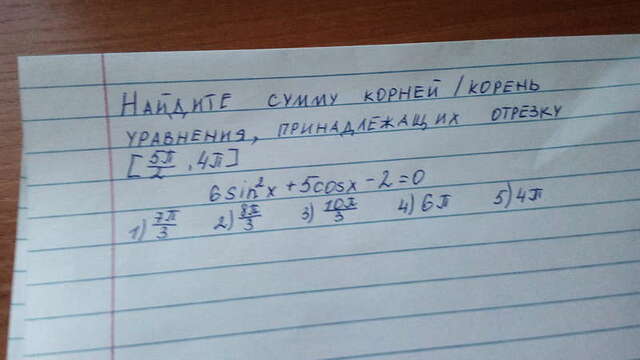 НАЙДИТЕ СУММУ КОРНЕЙ / КОРЕНЬ
УРАВНЕНИЯ, ПРИНАДЛЕЖАЩИХ ОТРЕЗКУ
[5π/2, 4π]
6sin²x + 5cosx - 2 = 0
1) 7π/3 2) 8π/3 3) 10π/3 4) 6π 5) 4π